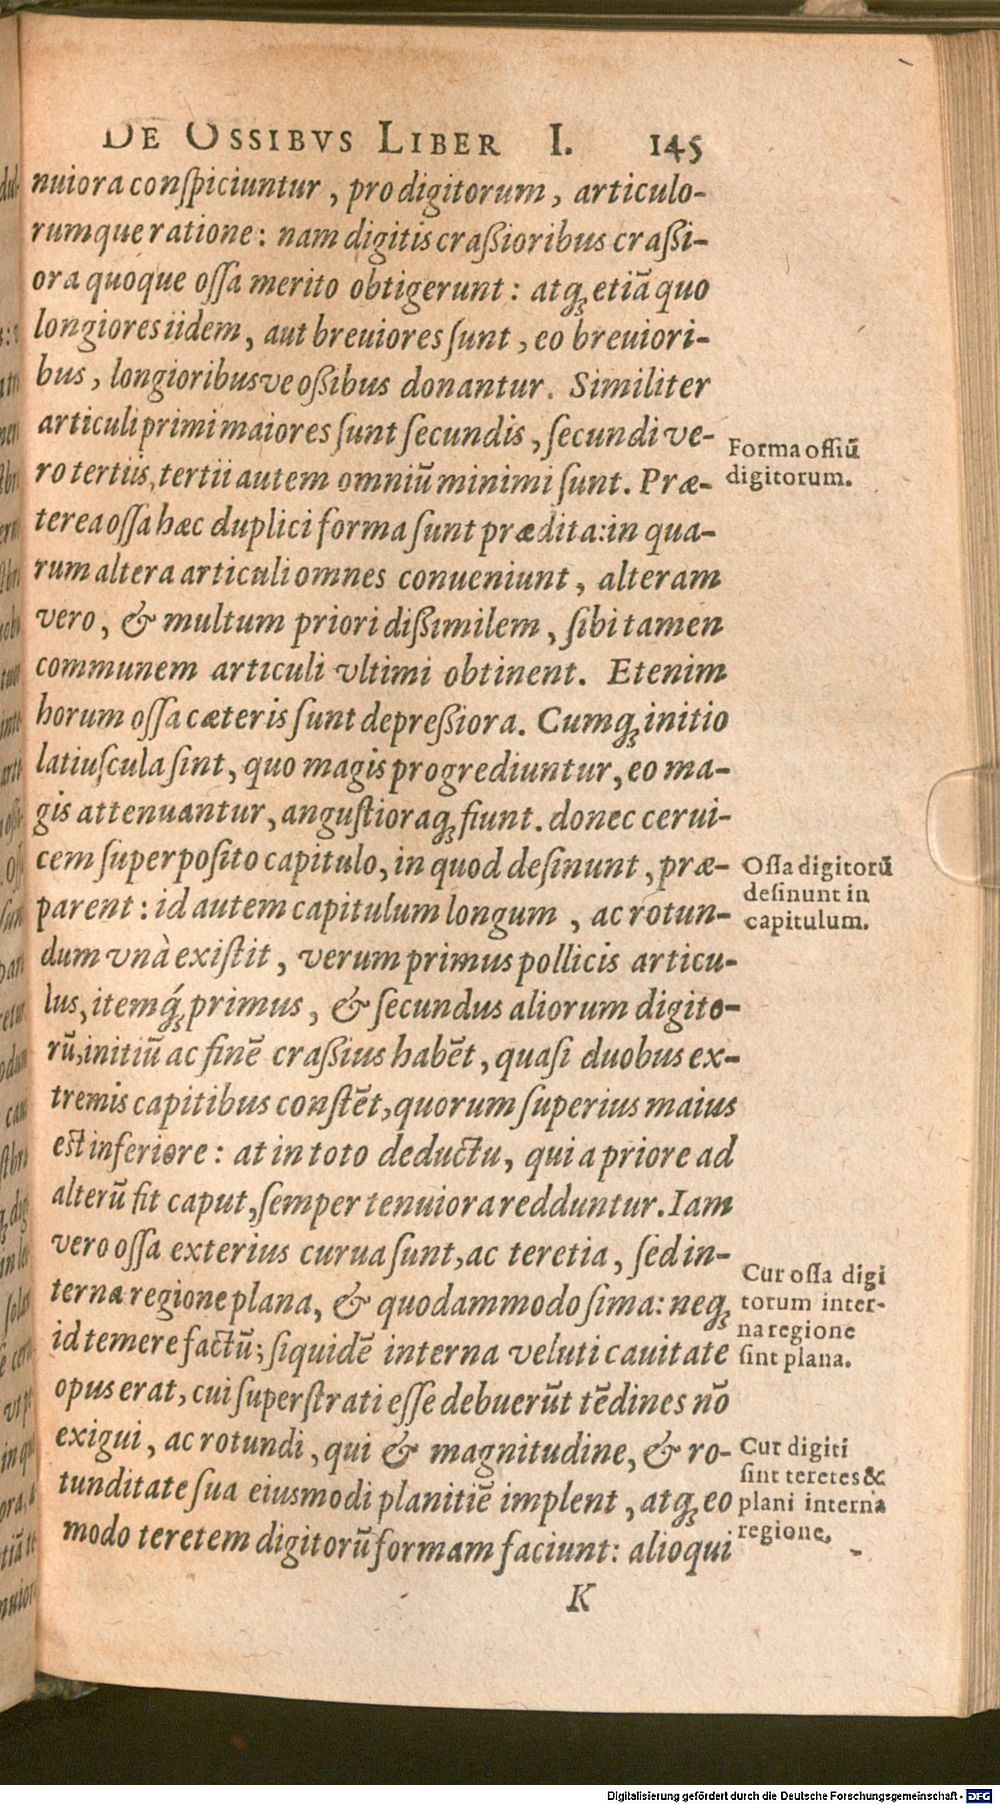 DE OSSIBVS LIBER I. 145
nuiora conſpiciuntur, pro digitorum, articulo-
rumque ratione: nam digitis craßioribus craßi-
ora quoque oſſa merito obtigerunt: atq; etiā quo
longiores iidem, aut breuiores ſunt, eo breuiori-
bus, longioribusve oßibus donantur. Similiter
articuli primi maiores ſunt ſecundis, ſecundi ve-
ro tertiis, tertii autem omniū minimi ſunt. Præ-
terea oſſa hæc duplici forma ſunt prædita: in qua-
rum altera articuli omnes conueniunt, alteram
vero, & multum priori dißimilem, ſibi tamen
communem articuli vltimi obtinent. Etenim
horum oſſa cæteris ſunt depreßiora. Cumq; initio
latiuſcula ſint, quo magis progrediuntur, eo ma-
gis attenuantur, anguſtioraq; fiunt. donec cerui-
cem ſuperpoſito capitulo, in quod deſinunt, præ-
parent: id autem capitulum longum, ac rotun-
dum vnà exiſtit, verum primus pollicis articu-
lus, itemq́; primus, & ſecundus aliorum digito-
rū, initiū ac finē craßius habēt, quaſi duobus ex-
tremis capitibus conſtēt, quorum ſuperius maius
eſt inferiore: at in toto deductu, qui a priore ad
alterū fit caput, ſemper tenuiora redduntur. Iam
vero oſſa exterius curua ſunt, ac teretia, ſed in-
terna regione plana, & quodammodo ſima: neq;
id temere factū; ſiquidē interna veluti cauitate
opus erat, cui ſuperſtrati eſſe debuerūt tēdines nō
exigui, ac rotundi, qui & magnitudine, & ro-
tunditate ſua eiusmodi planitiē implent, atq; eo
modo teretem digitorū formam faciunt: alioqui
K
Forma oſſiū
digitorum.
Oſſa digitorū
deſinunt in
capitulum.
Cur oſſa digi
torum inter-
na regione
ſint plana.
Cur digiti
ſint teretes &
plani interna
regione.
Digitalisierung gefördert durch die Deutsche Forschungsgemeinschaft - DFG